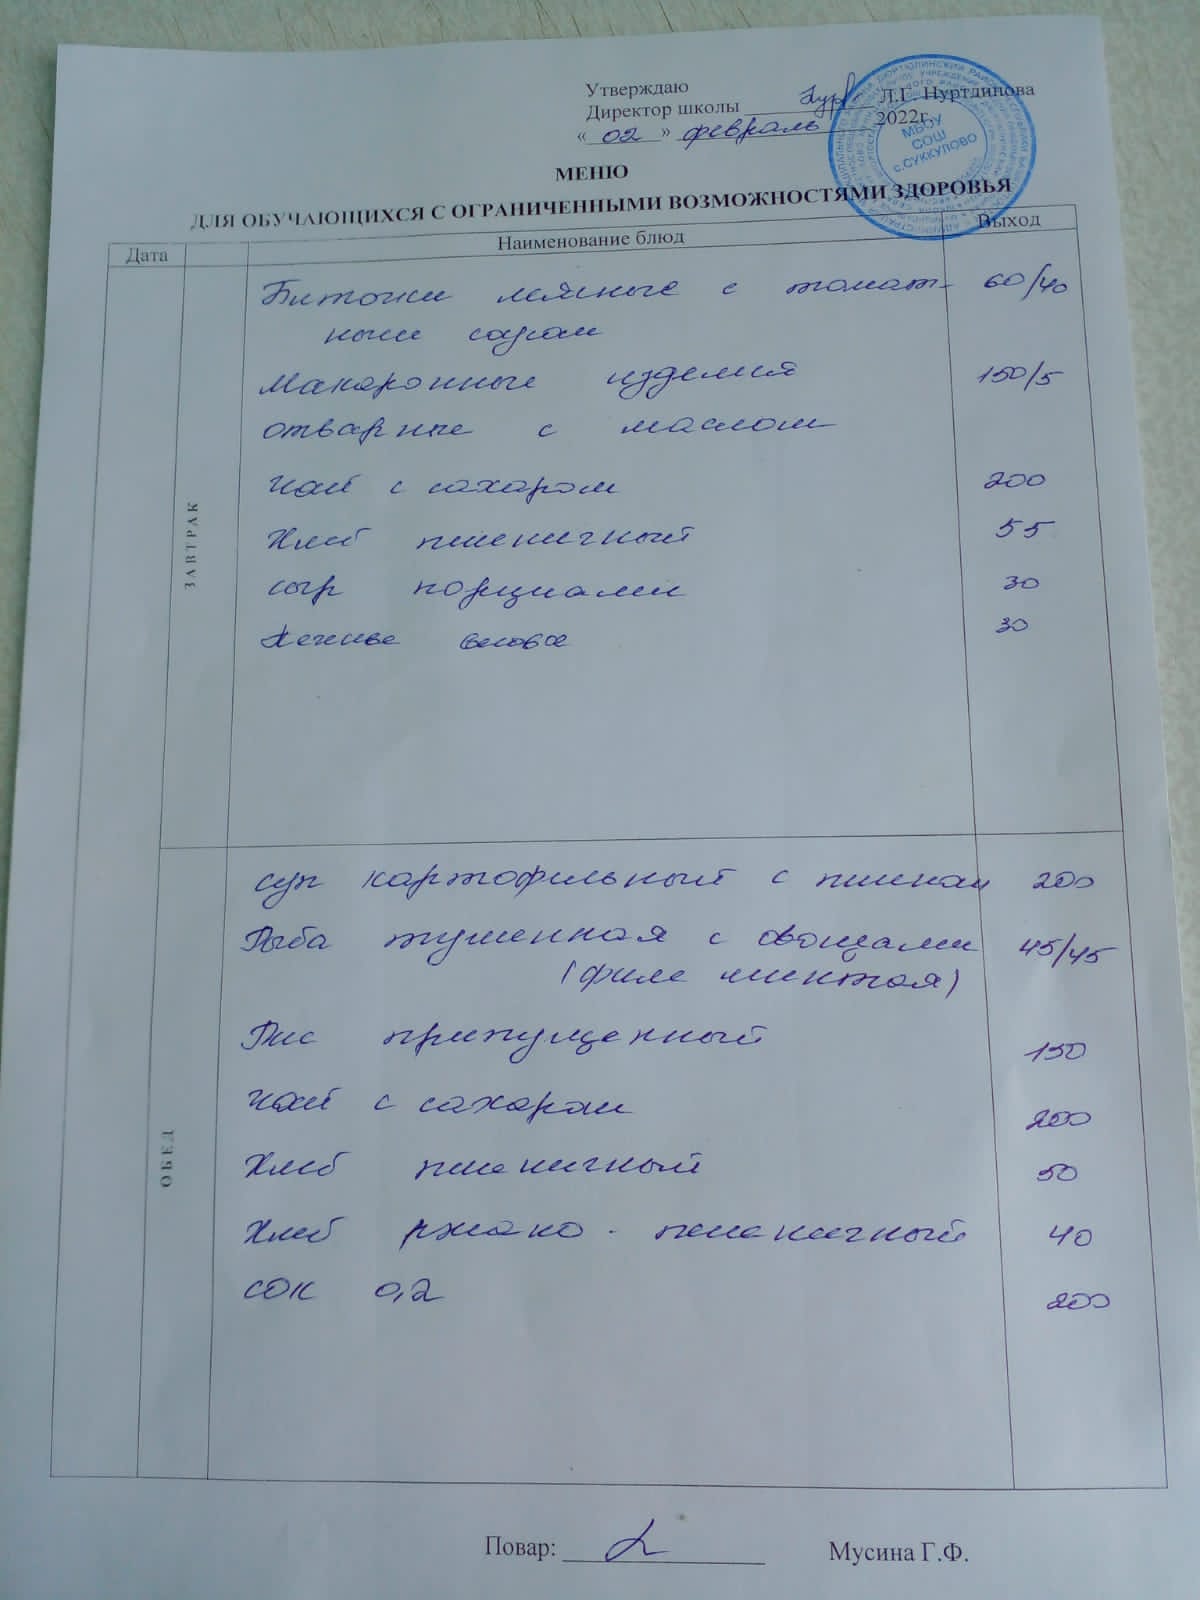 Утверждаю
Директор школы Л.Г. Нуртдинова
« 02 » февраль 2022г.
МБОУ
СОШ
с.СУККУЛОВО
МЕНЮ
ДЛЯ ОБУЧАЮЩИХСЯ С ОГРАНИЧЕННЫМИ ВОЗМОЖНОСТЯМИ ЗДОРОВЬЯ
Дата Наименование блюд Выход
ЗАВТРАК
Биточки мясные с томат- 60/40
ным соусом
Макаронные изделия 150/5
отварные с маслом
Чай с сахаром 200
Хлеб пшеничный 55
сыр порциями 30
Печенье 30
ОБЕД
суп картофельный с пшеном 200
Рыба тушенная с овощами 45/45
(филе минтая)
Рис припущенный 150
Чай с сахаром 200
Хлеб пшеничный 50
Хлеб ржано - пшеничный 40
сок 0,2 200
Повар: Мусина Г.Ф.